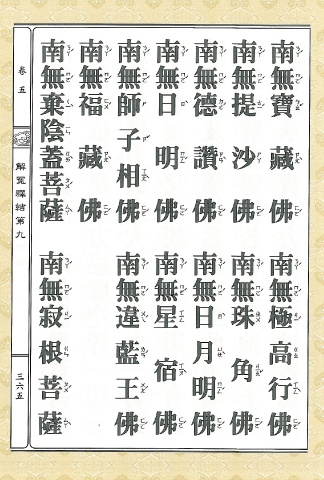 南無寶藏佛 南無極高行佛
南無提沙佛 南無珠角佛
南無德讚佛 南無日月明佛
南無日明佛 南無星宿佛
南無師子相佛 南無違藍王佛
南無福藏佛
南無棄陰蓋菩薩 南無寂根菩薩
卷五
解冤釋結第九
三六五